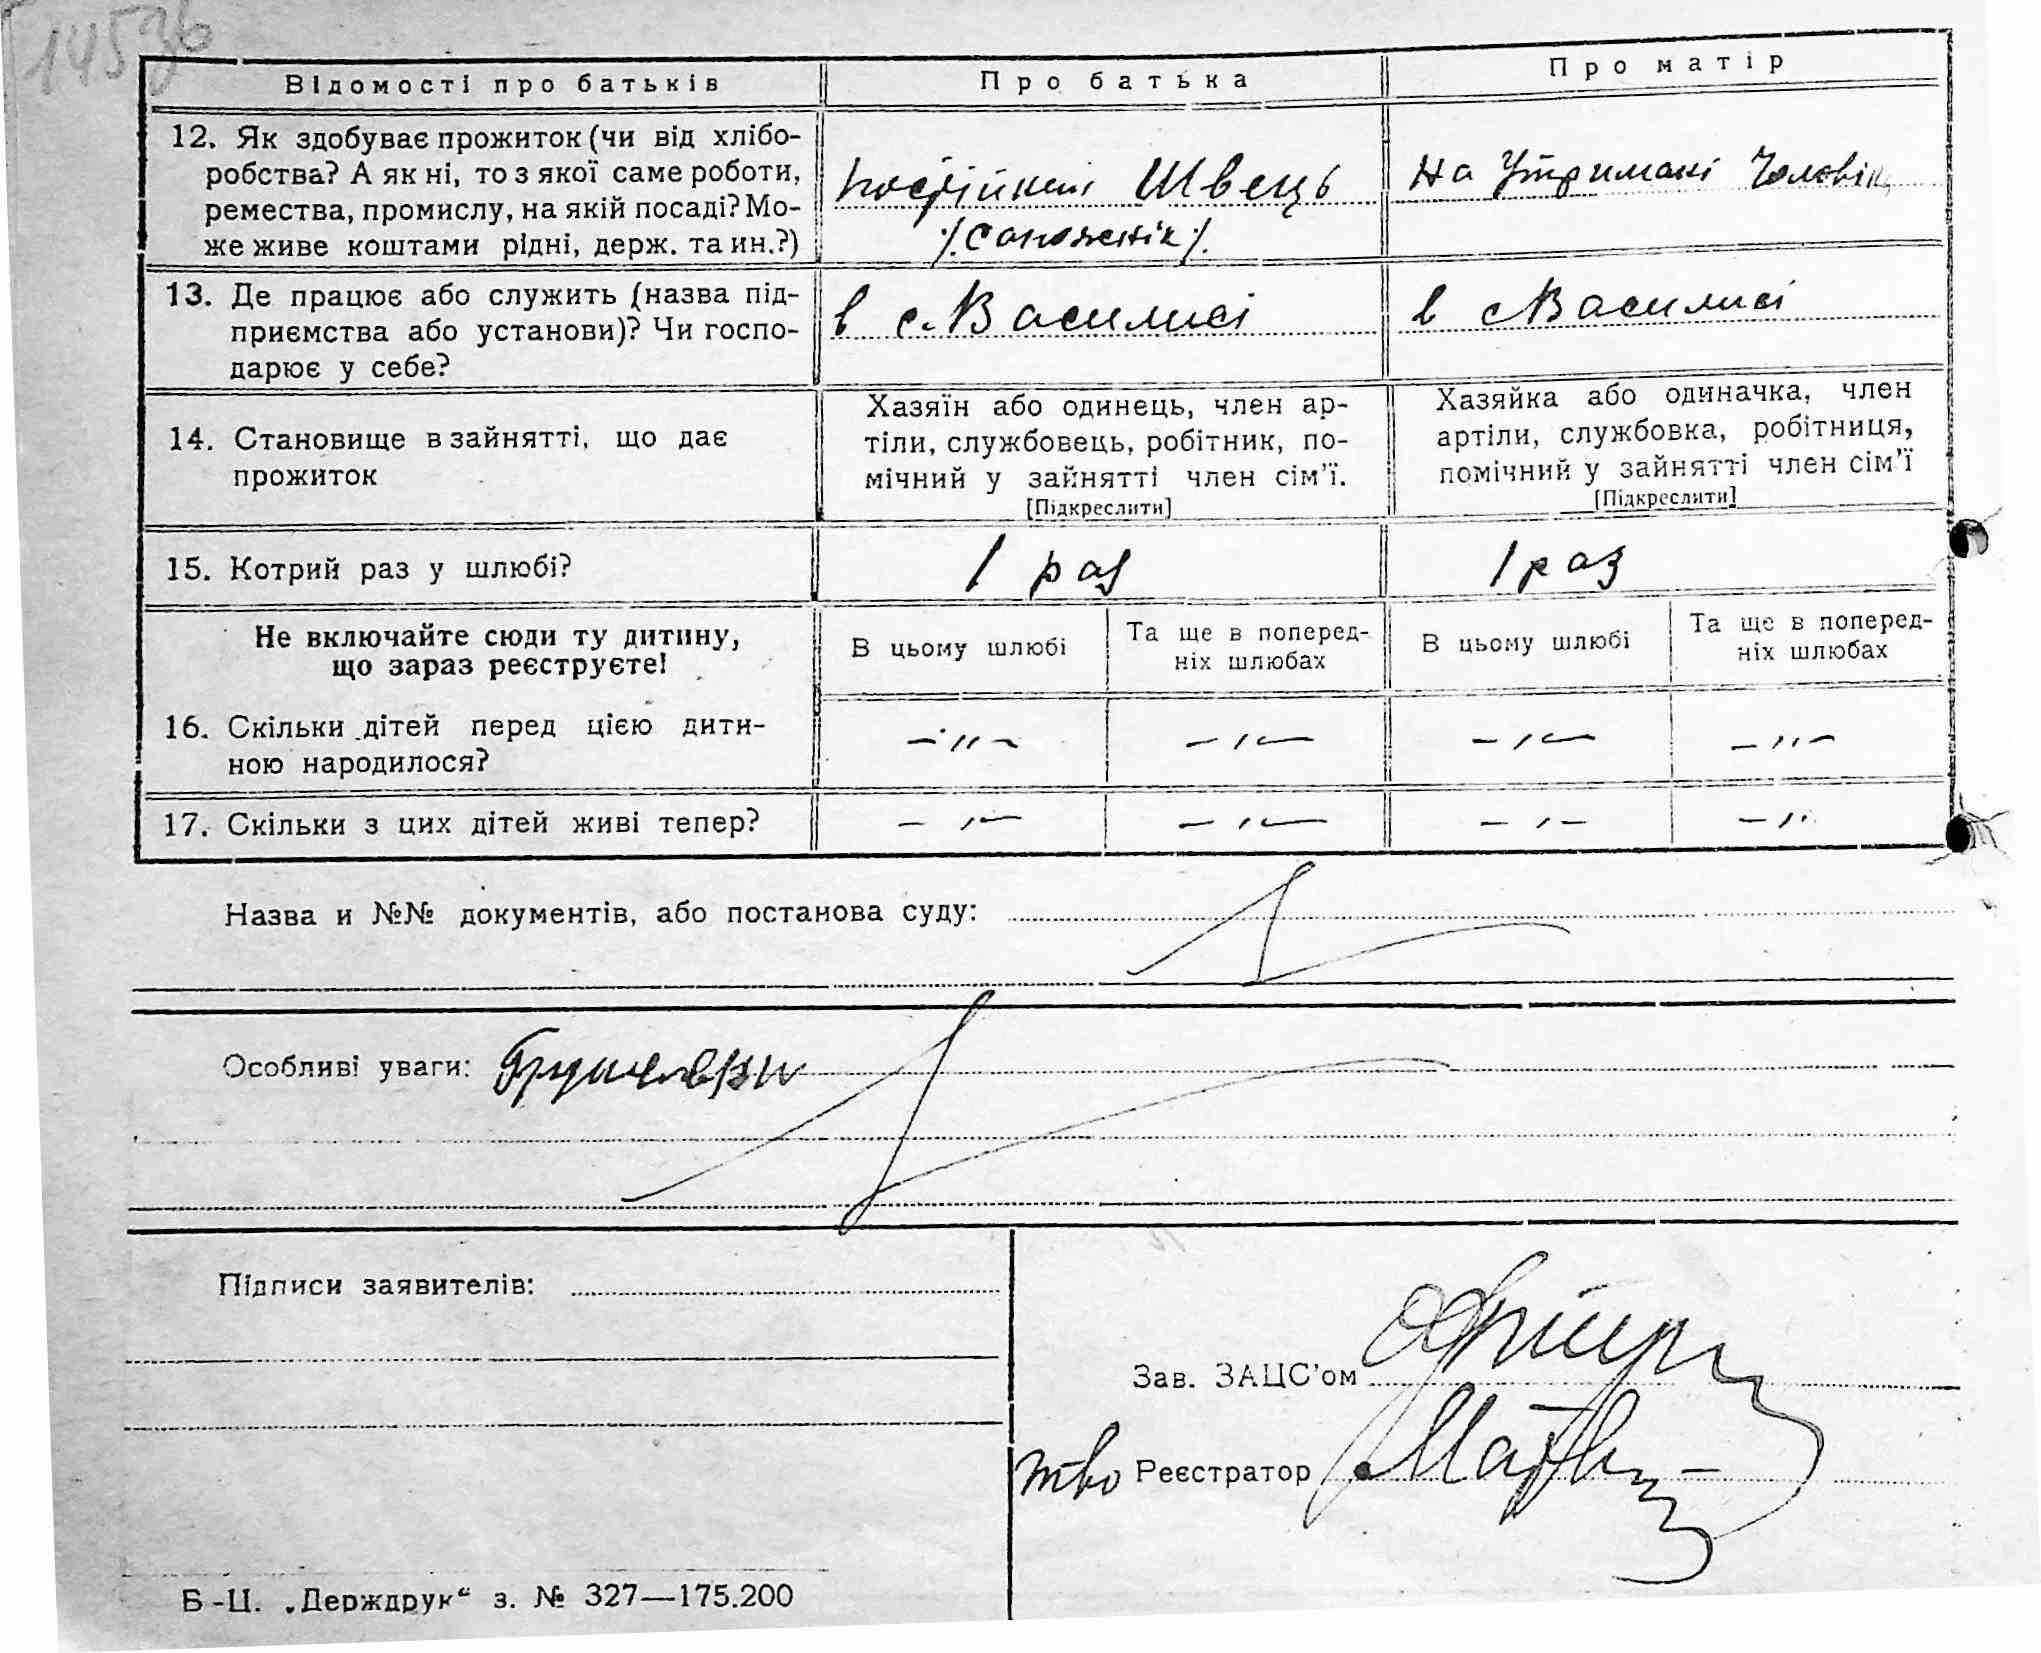 1453б
Відомості про батьків
Про батька
Про матір
12. Як здобуває прожиток (чи від хлібо-
робства? А як ні, то з якої саме роботи,
ремества, промислу, на якій посаді? Мо-
же живе коштами рідні, держ. та ин.?)
Швець
/.Сапожнік/.
На Утримані Чоловік
13. Де працює або служить (назва під-
приємства або установи)? Чи госпо-
дарює у себе?
в с. Василисі
в с Василисі
14. Становище в зайнятті, що дає
прожиток
Хазяїн або одинець, член ар-
тіли, службовець, робітник, по-
мічний у зайнятті член сім'ї.
[Підкреслити]
Хазяйка або одиначка, член
артіли, службовка, робітниця,
помічний у зайнятті член сім'ї
[Підкреслити]
15. Котрий раз у шлюбі?
1 раз
1 раз
Не включайте сюди ту дитину,
що зараз реєструєте!
В цьому шлюбі
Та ще в поперед-
ніх шлюбах
В цьому шлюбі
Та ще в поперед-
ніх шлюбах
16. Скільки дітей перед цією дити-
ною народилося?
—"—
—"—
—"—
—"—
17. Скільки з цих дітей живі тепер?
—"—
—"—
—"—
—"—
Назва и №№ документів, або постанова суду:
Особливі уваги:
Підписи заявителів:
Зав. ЗАЦС'ом
тво Реєстратор
Б-Ц. „Держдрук“ з. № 327—175.200